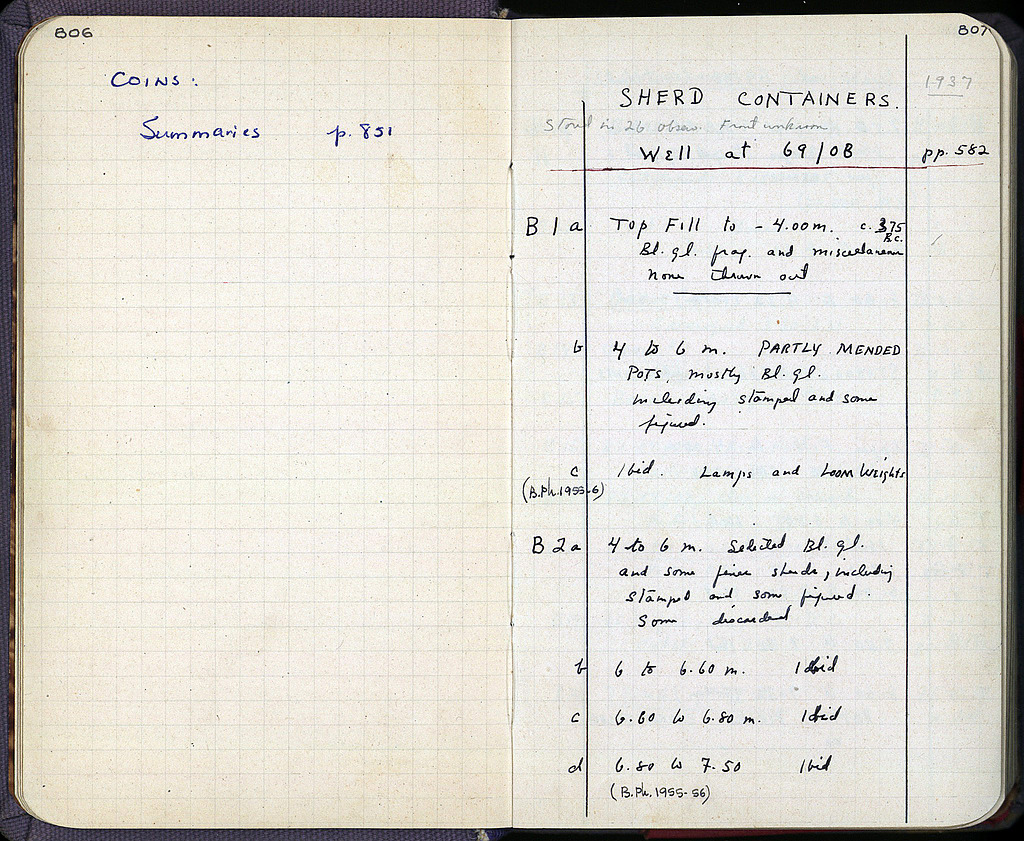 806
COINS:
Summaries p. 851
807
1937
SHERD CONTAINERS.
Stored in 26 obsew. Front unknown
Well at 69/OB pp. 582
B 1 a Top Fill to - 4.00m. c. 375 B.C.
Bl. gl. frag. and miscellaneous
none thrown out
b 4 to 6 m. PARTLY MENDED
POTS, mostly Bl. gl.
including stamped and some
figured.
c Ibid. Lamps and Loom Weights
(B.Ph. 1955-6)
B 2 a 4 to 6 m. Selected Bl. gl.
and some finer sherds, including
stamped and some figured.
Some discarded
b 6 to 6.60 m. Ibid
c 6.60 to 6.80 m. Ibid
d 6.80 to 7.50 Ibid
(B.Ph. 1955-56)